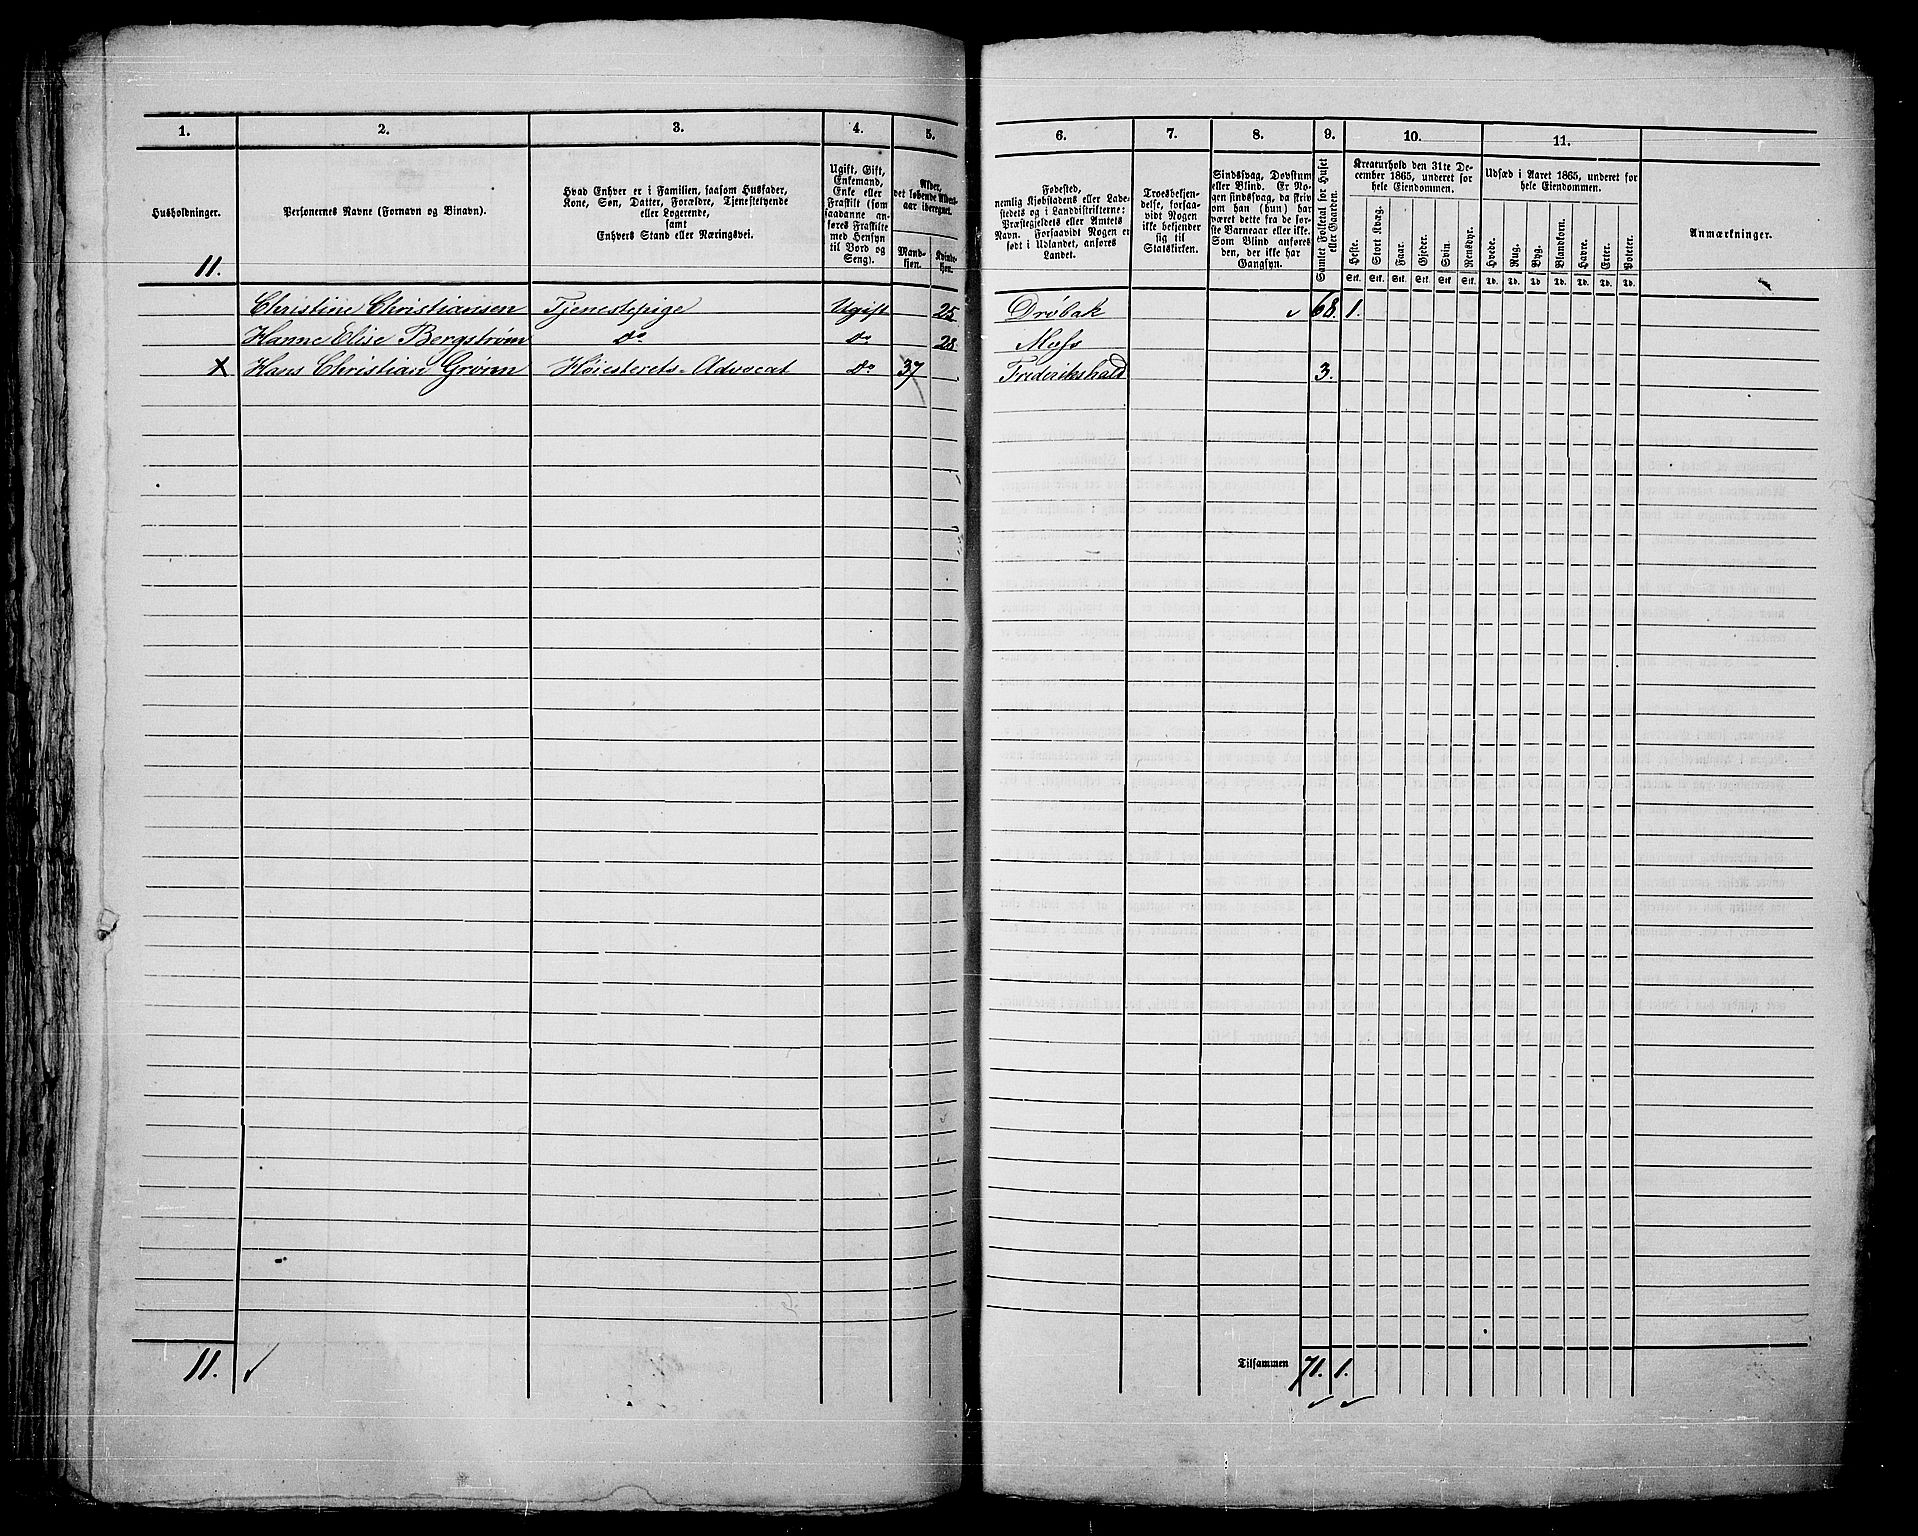 1.
2.
3.
4.
5.
Husholdninger.
Personernes Navne (Fornavn og Binavn).
Hvad Enhver er i Familien, saasom Husfader,
Kone, Søn, Datter, Forældre, Tjenestetyende
eller Logerende,
samt
Enhvers Stand eller Næringsvei.
Ugift, Gift,
Enkemand,
Enke eller
Fraskilt (som
saadanne an-
føres Fraskilte
med Hensyn
til Bord og
Seng).
Alder,
det løbende Alders-
aar iberegnet.
Mand-
kjøn.
Kvinde-
kjøn.
11.
Christine Christiansen Tjenestepige Ugift 25
Hanne Elise Bergstrøm do do 28
x Hans Christian Grønn Høiesterets-Advocat do 37
11. ✓
6.
7.
8.
9.
10.
11.
Fødested,
nemlig Kjøbstadens eller Lade-
stedets og i Landdistrikterne:
Præstegjeldets eller Amtets
Navn. Forsaavidt Nogen er
født i Udlandet, anføres
Landet.
Troesbekjen-
delse, forsaa-
vidt Nogen
ikke bekjender
sig til
Statskirken.
Sindssvag, Døvstum
eller Blind. Er No-
gen sindssvag, da skriv
om han (hun) har
været dette fra de før-
ste Barneaar eller ikke.
Som Blind anføres
den, der ikke har
Gangsyn.
Samlet Folketal for Huset
eller Gaarden.
Kreaturhold den 31te De-
cember 1865, underet for
hele Eiendommen.
Heste.
Stort Kvæg.
Faar.
Gjeder.
Svin.
Rensdyr.
Stk. Stk. Stk. Stk. Stk. Stk.
Udsæd i Aaret 1865, underet for
hele Eiendommen.
Hvede.
Rug.
Byg.
Blandkorn.
Havre.
Erter.
Poteter.
Td. Td. Td. Td. Td. Td. Td.
Anmærkninger.
Drøbak ✓ 68. 1.
Moss
Frederikshald 3.
Tilsammen 71. 1.
✓ ✓